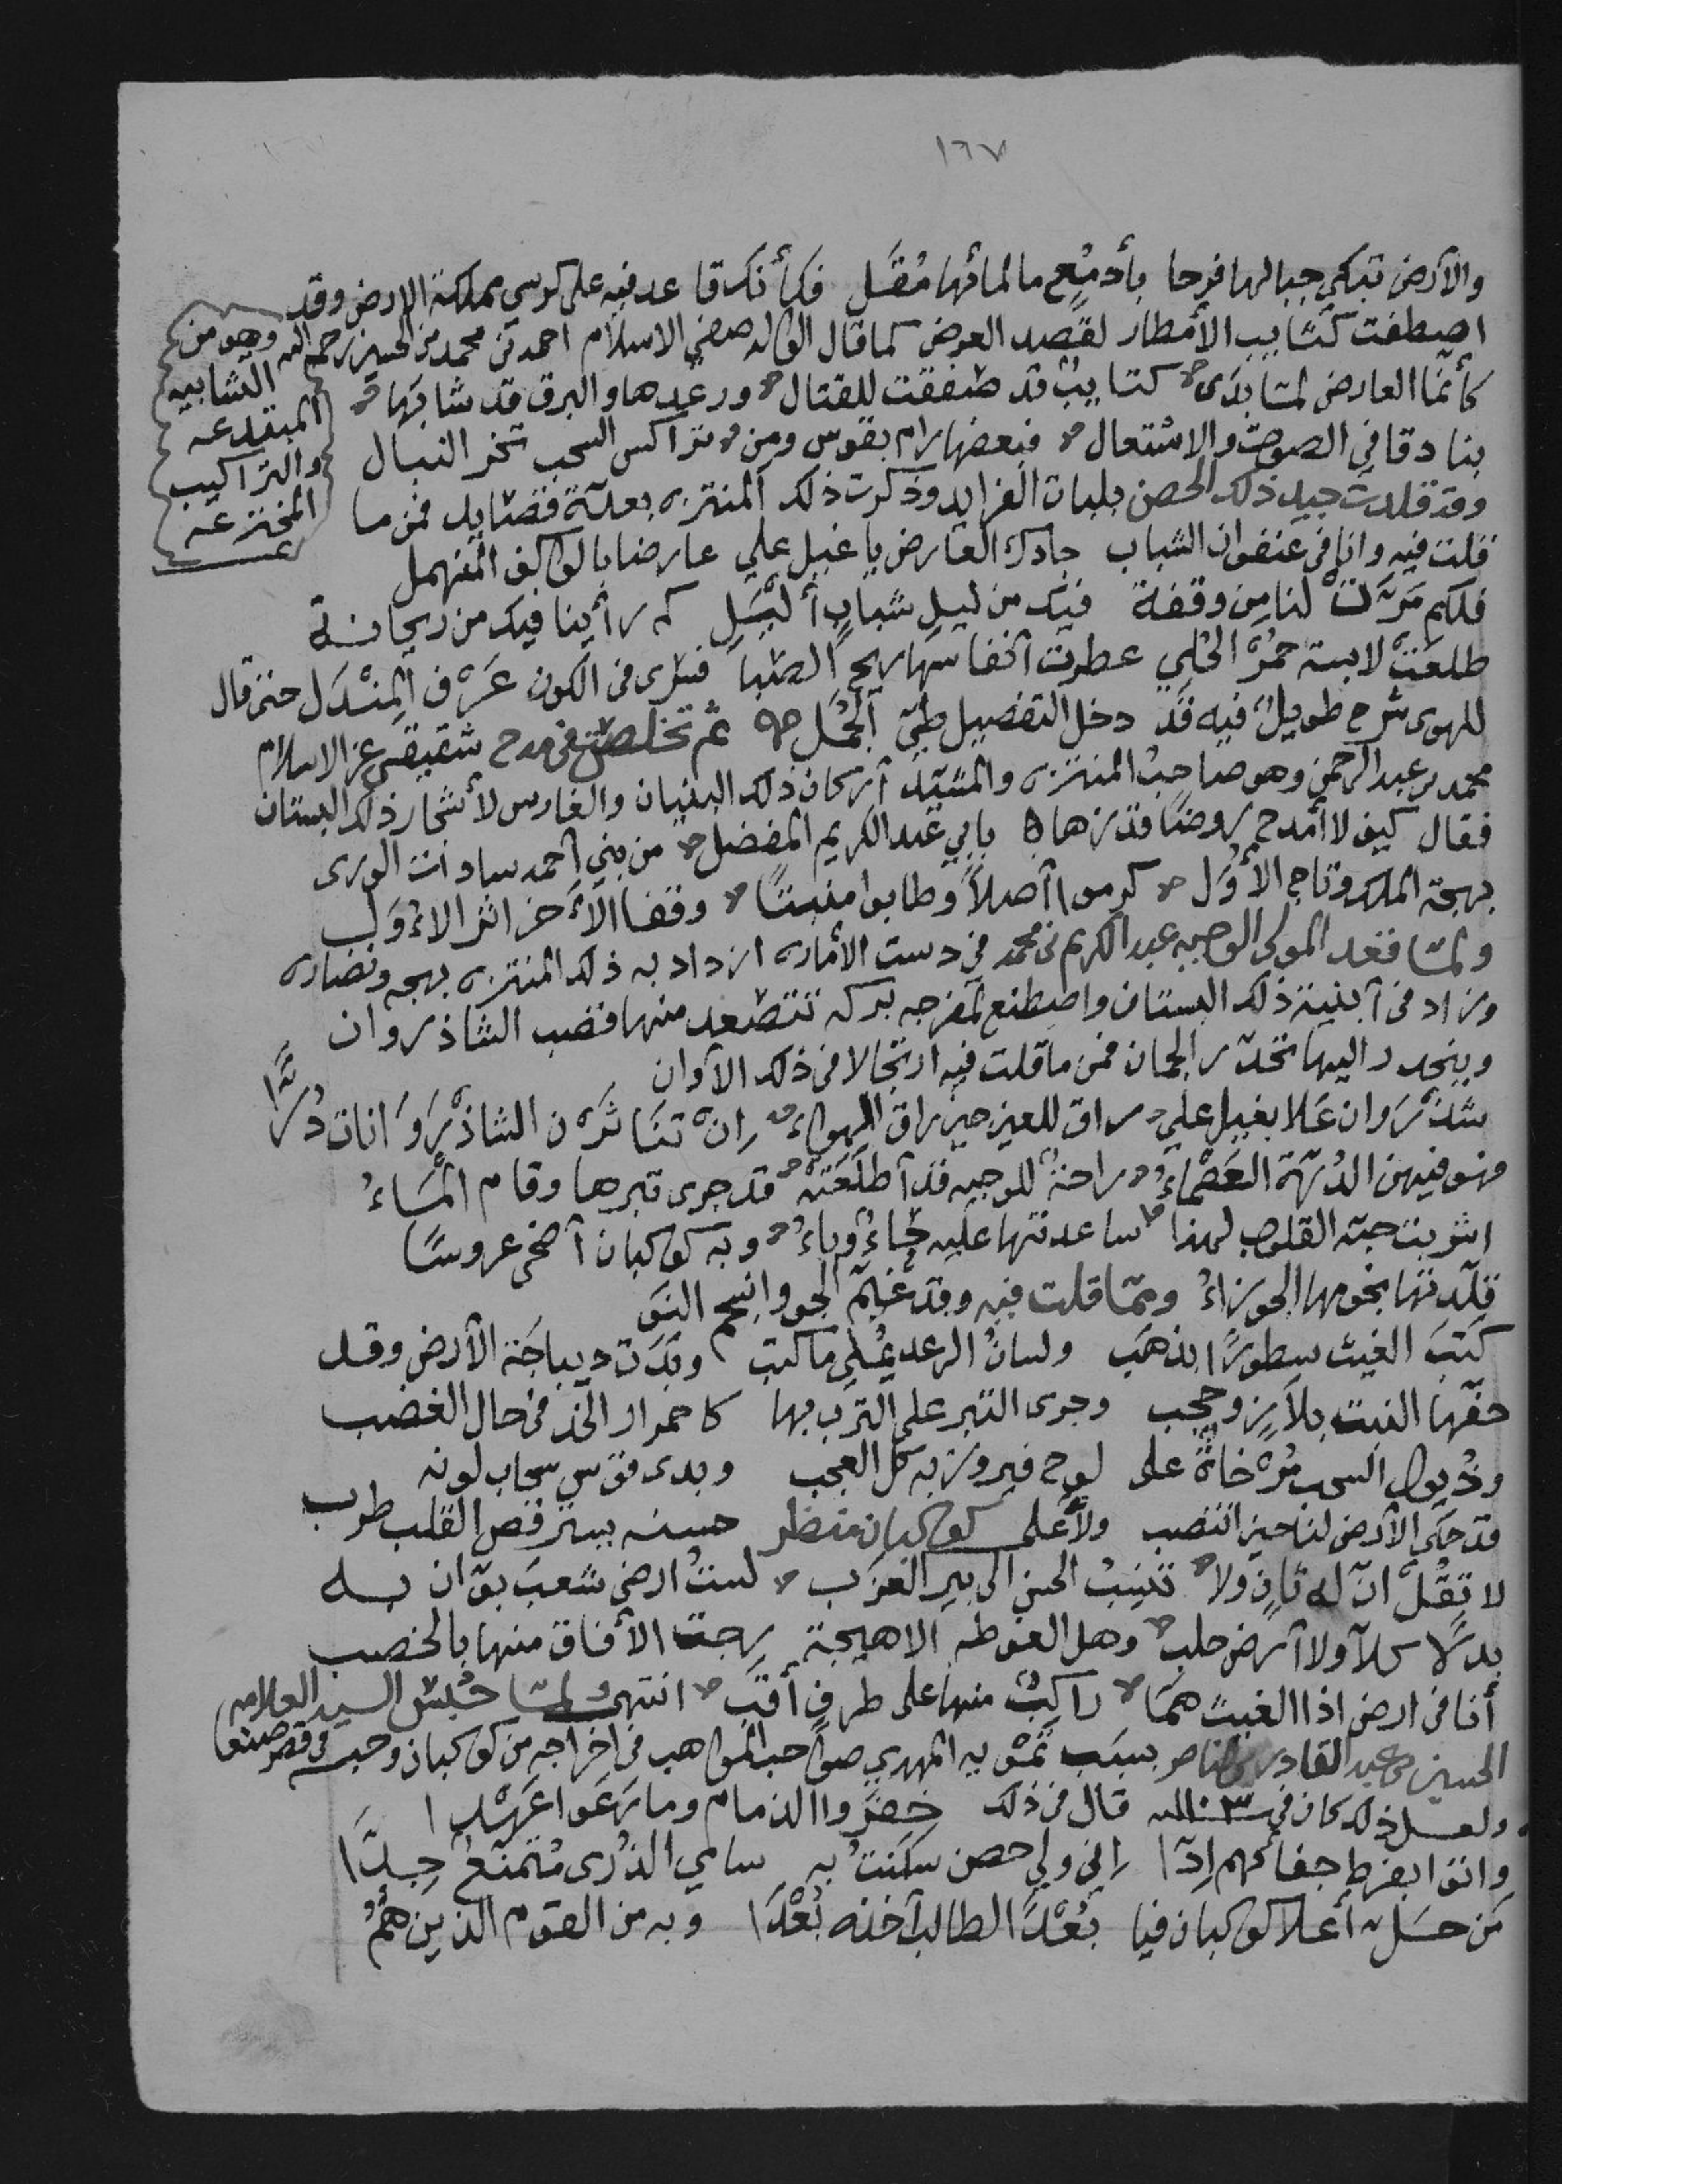 ١٦٧
والأرض تبكي جبالها فرحا بأدمُع ما لمائها مُقَل فكأنك قاعد فيه على كرسي مملكة الارض وقد
اصطفت كتايب الأمطار لقصد العرض كما قال الوالد صفي الاسلام احمد بن محمد بن الحسين رحمه الله وهو من
التشابيه
المبتدعه
والتراكيب
المخترعه
كأنما العارض لمّا بدَى كتايبٌ قد صففت للقتال ورعدها والبرق قد شابَها
بنادقا في الصوت والاشتعال فبعضها رام بقوس ومن تراكس السحب تخر النبال
وقد قلدت جيد ذلك الحصن بلبات الفرايد وذكرت ذلك المنتزه بعدّة قصايد فمن ما
قلت فيه وانا في عنفوان الشباب جادك العارض يا غيل علي عارضا بالواكف المنهمل
فلكم مَرّتْ لنا من وقفة فيك من ليل شبابٍ ألْيَلِ كم رأينا فيك من ريحانة
طلعَتْ لابسة حمُرْ الحُلي عطرت انفاسها ريح الصّبا فسرى في الكون عَرْف المنْدَل حتى قال
للهوى شرح طويلٌ فيه قَد دخل التفصيل طيّ الجُمَل ثم تخلصت في مدح شقيقي عز الاسلام
محمد بن عبد الرحمن وهو صاحب المنتزه والمشيّد أركان ذلك البنيان والغارس لأشجار ذلك البستان
فقال كيف لا أمدح روضًا قد زها بابي عبد الكريم المفضل من بني احمد سادات الورى
بهجة الملك وتاج الأوّل كرموا أصلاً وطابوا منبتًا وقفا الآخر اثر الاوّل
ولمّا قعد المولى الوجيه عبد الكريم بن محمد في دست الأماره ازداد به ذلك المنتزه بهجه ونضاره
وزاد في أبنية ذلك البستان واصطنع لمفرجه بركه تتصعد منها قضب الشاذروان
وينحدر اليها تحدّر الجمان فمن ما قلت فيه ارتجالا في ذلك الآوان
شذْرَوان عَلا بغيل علي راق للعين حين راق الهواءُ إنْ تنَاثَرْن الشاذْرَوَانات دُرًّا
فهو فيهن الدُرّة العَصْماءُ راحةٌ للوجيه قد أطلَعَتْه قد جرى تبرها وقام المَاءُ
اشربت حبّه القلوب لهذا ساعدتها عليه حَاءٌ وباءُ وبه كوكبان أضحى عروسًا
قلّدتها نجومها الجوزاءُ وممّا قلت فيه وقد غيّم الجو وانسجم النَو
كَتبَ الغيث سطورًا بذهَب ولسانُ الرعد يُملي ما كتب وبَدَت ديباجَة الأرض وقد
حفّها النبت بلاَزِ وحجب وجرى التبر على الترب بها كاحمرار الخد في حال الغضب
وذيول السحب مُرْخاةٌ على لوح فيروزٍ به كل العجب وبدى قوس سحاب لونه
قد حكى الأرض لنا حين انتصب ولأعلى كوكبان منظر حسنه يسترقص القلب طرب
لا تقُلْ انّ له ثانٍ ولا تنْسِبُ الحسن الى بير العزَب لستُ ارضى شعبَ بوّان به
بدلًا كلا ولا أرض حلب وهل الغوطه الا هيجة رجت الأفاق منها بالخصب
أنا في ارض اذا الغيث همَا راكبٌ منها على طرف أقَب انتهى ولمّا حُبس السيد العلامه
الحسين بن عبد القادر بن الناصر بسبَب تموّيه المهدي صاحب المواهب في اخراجه من كوكبان وحبسه في قصر صنعا
ولعل ذلك كان في سنه قال في ذلك خفَروا الذمام وما رَعَوا عَهْدا
واتوا بفرط جفائهم إدّا إني ولي حصن سكنتُ به سامي الذُرى متمنّعٌ جِدّا
مَن حَل أعلا كوكبان فيا بُعْدًا لطالب أخذه بُعْدَا وبه من القوم الذين همُ